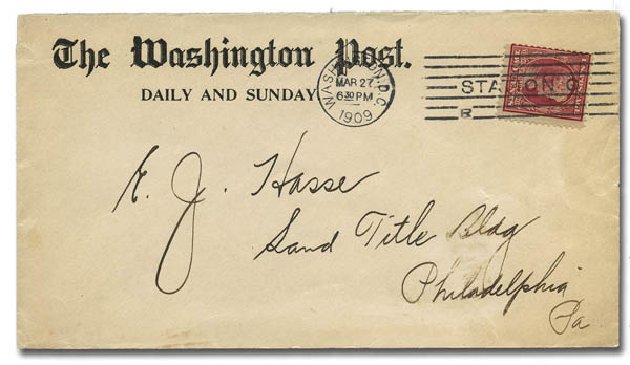 The Washington Post.
DAILY AND SUNDAY
WASHINGTON, D.C.
MAR 27
6 30 PM
1909
STATION C
E. J. Hasse
Land Title Bldg
Philadelphia
Pa